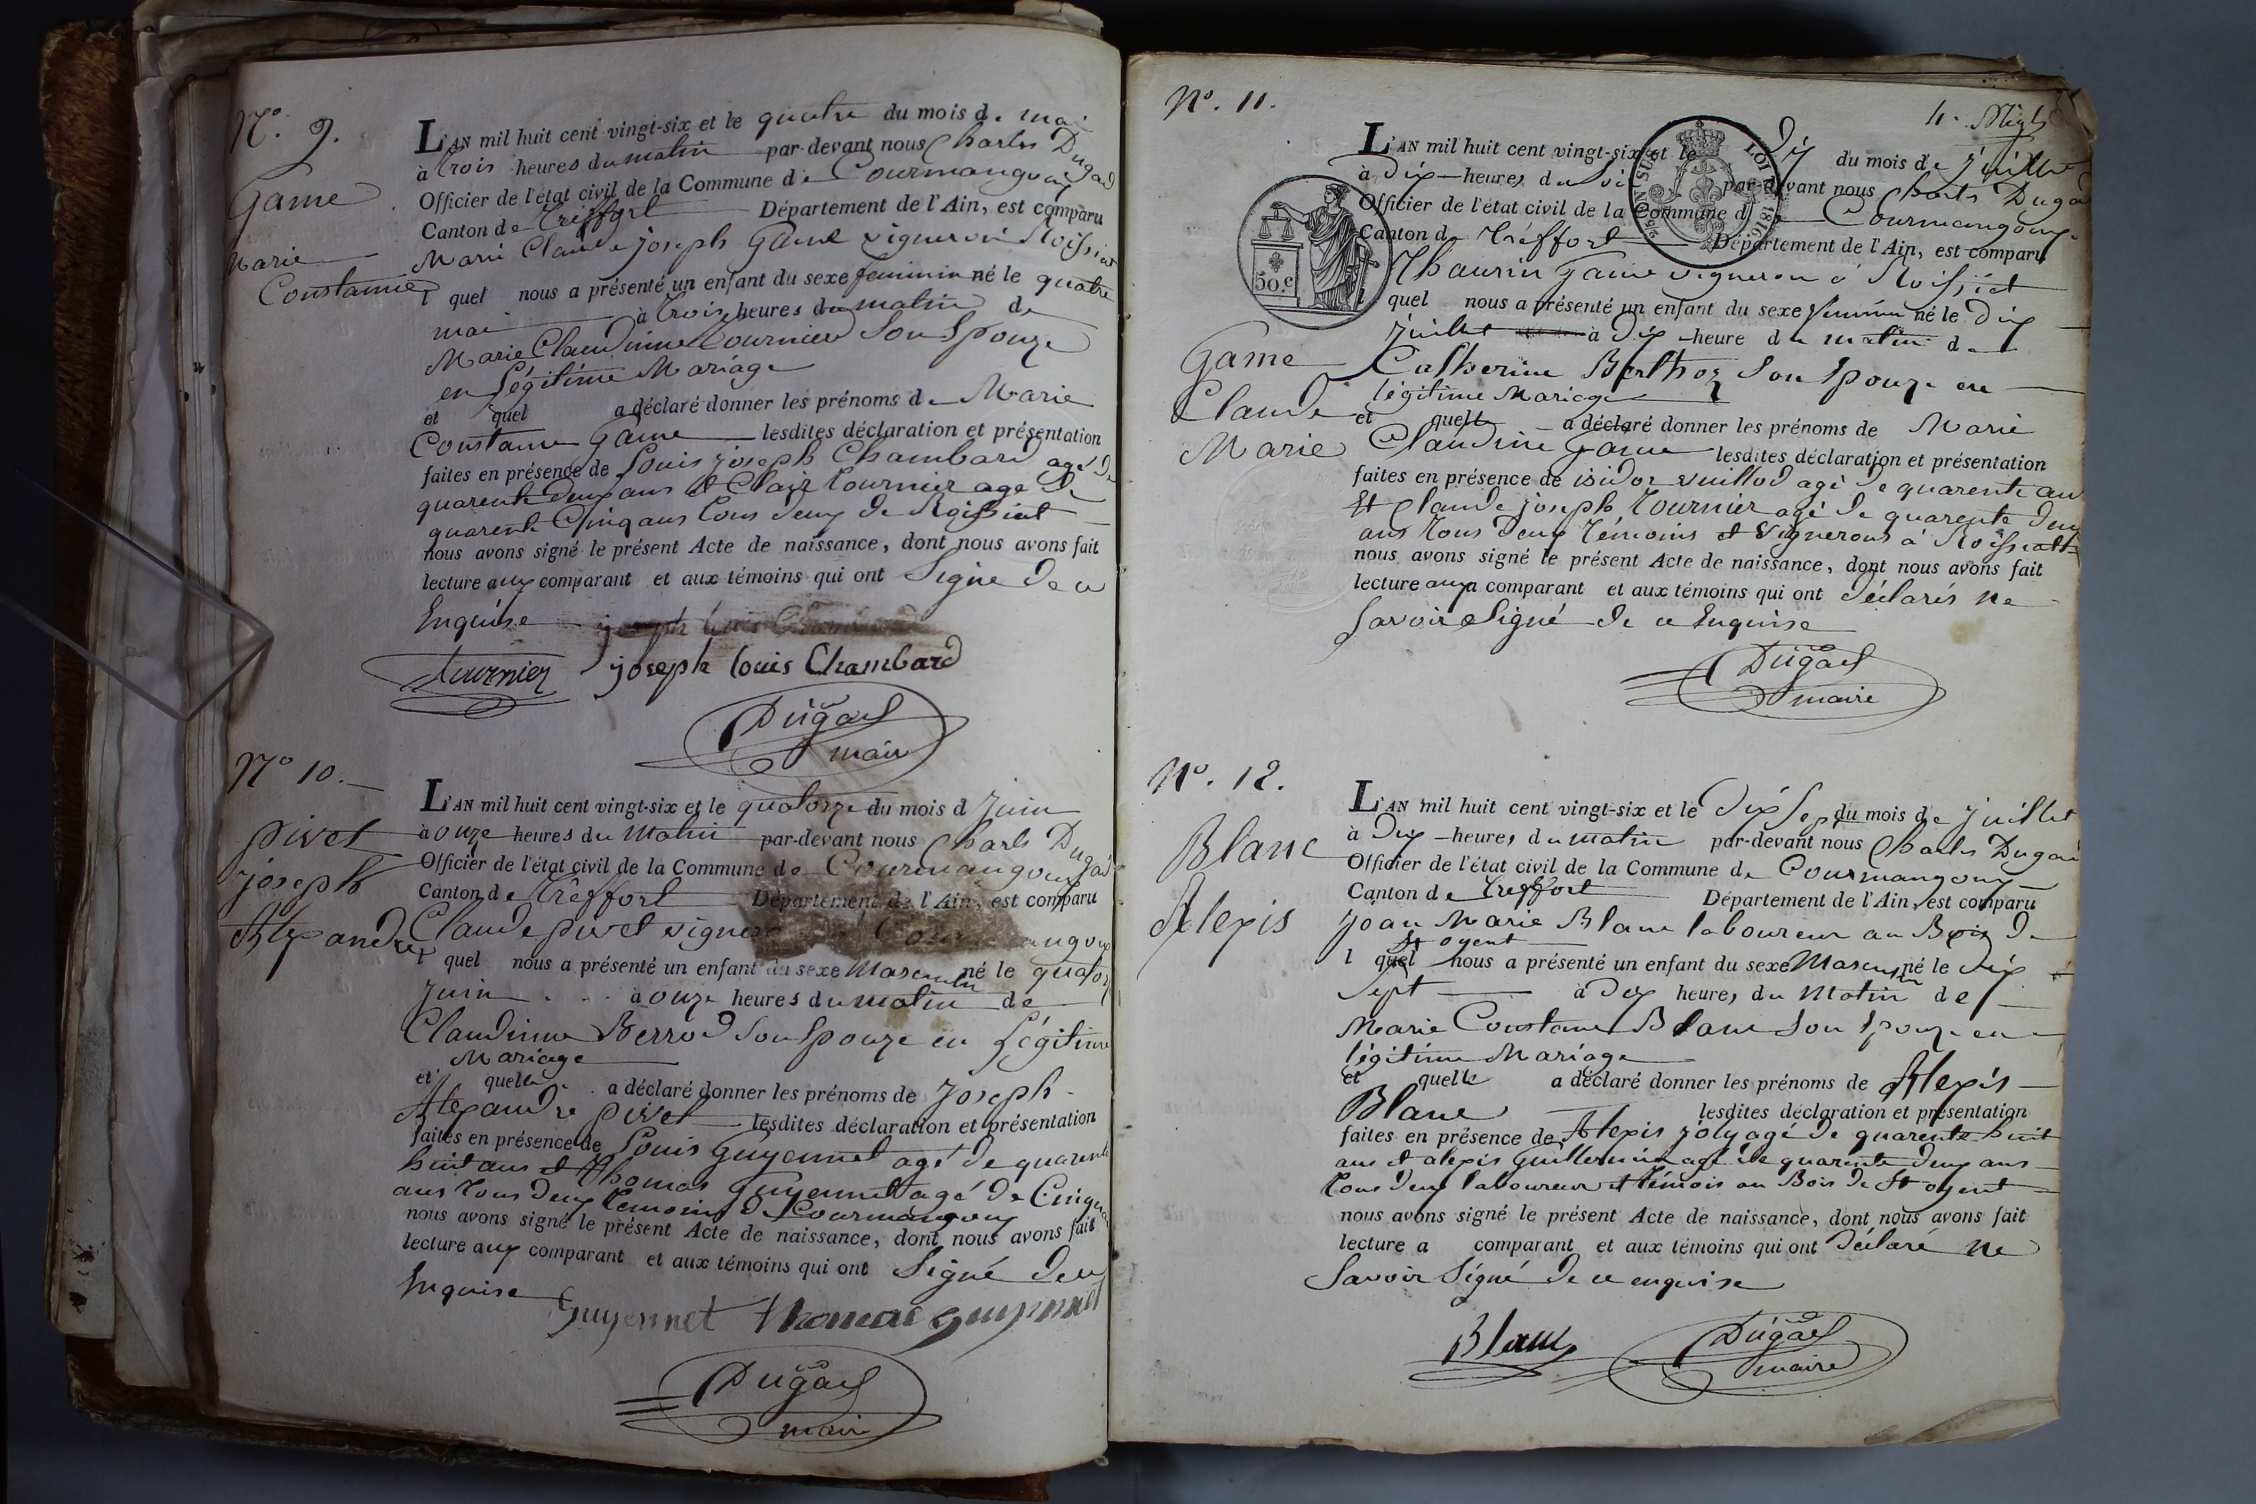 N.º 9.
Game
Marie
Constance
L'AN mil huit cent vingt-six et le quatre du mois de mai
à trois heures du matin par-devant nous Charles Dugad
Officier de l'état civil de la Commune de Courmangoux
Canton de Tréffort Département de l'Ain, est comparu
Marie Claude joseph Game vigneron Roissiat
l quel nous a présenté un enfant du sexe feminin né le quatre
mai à trois heures du matin de
Marie Claudinne Tournier Son Epouze
en Légitime Mariage
et quel a déclaré donner les prénoms de Marie
Constance Game lesdites déclaration et présentation
faites en présence de Louis joseph Chambard agé de
quarente deux ans et Clair Tournier agé de
quarente Cinq ans tous deux de Roissiat
nous avons signé le présent Acte de naissance, dont nous avons fait
lecture aux comparant et aux témoins qui ont Signé de ce
Enquise joseph louis Chambard
Tournier joseph louis Chambard
Dugad
maire
Nº 10.
pivet
joseph
Alexandre
L'AN mil huit cent vingt-six et le quatorze du mois d juin
à onze heures du Matin par-devant nous Charles Dugad
Officier de l'état civil de la Commune de Courmangoux
Canton de Tréffort Département de l'Ain, est comparu
Claude pivet vigneron Courmangoux
l quel nous a présenté un enfant du sexe Masculin né le quatorze
juin à onze heures du matin de
Claudinne Berrod Son Epouze en Légitime
Mariage
et quelle a déclaré donner les prénoms de joseph
Alexandre pivet lesdites déclaration et présentation
faites en présence de Louis Guyennet agé de quarente
huit ans et Thomas Guyennet agé de Cinquante
ans tous deux temoins de Courmangoux
nous avons signé le présent Acte de naissance, dont nous avons fait
lecture aux comparant et aux témoins qui ont Signé de ce
Enquise
Guyennet thomas guyennet
Dugad
maire
Nº. 11.
Game
Claude
Marie
L'AN mil huit cent vingt-six et le dix du mois de juillet
à Dix heures du par-devant nous Charles Dugad
Officier de l'état civil de la Commune d Courmangoux
Canton de Tréffort Département de l'Ain, est comparu
LOI 1816.
50.c
Thaurin Game vigneron a Roissiat
quel nous a présenté un enfant du sexe feminin né le dix
juillet à Dix heure du matin de
Catherine Berthoz Son Epouze en
légitime Mariage
et quelle a déclaré donner les prénoms de Marie
Claudine Game lesdites déclaration et présentation
faites en présence de isidor vuillod agé de quarente ans
Et Claude joseph Tournier agé de quarente deux
ans tous deux témoins et vignerons a Roissiatt
nous avons signé le présent Acte de naissance, dont nous avons fait
lecture aux comparant et aux témoins qui ont déclarés ne
Savoir Signé de ce Enquise
Dugad
maire
Nº. 12.
Blanc
Alexis
L'AN mil huit cent vingt-six et le dix Sep du mois de juillet
à dix heures du matin par-devant nous Charles Dugad
Officier de l'état civil de la Commune de Courmangoux
Canton de treffort Département de l'Ain, est comparu
joan Marie Blanc laboureur au Bois de
St oyent
l quel nous a présenté un enfant du sexe Masculin né le dix
Sept à dix heures du Matin de
Marie Constance Blanc Son Epouze en
légitime Mariage
et quelle a déclaré donner les prénoms de Alexis
Blanc lesdites déclaration et présentation
faites en présence de Alexis joly agé de quarente huit
ans et alexis Guillermin agé de quarente deux ans
tous deux laboureur et témois au Bois de St oyent
nous avons signé le présent Acte de naissance, dont nous avons fait
lecture a comparant et aux témoins qui ont déclaré ne
Savoir Signé de ce enquise
Blanc
Dugad
maire